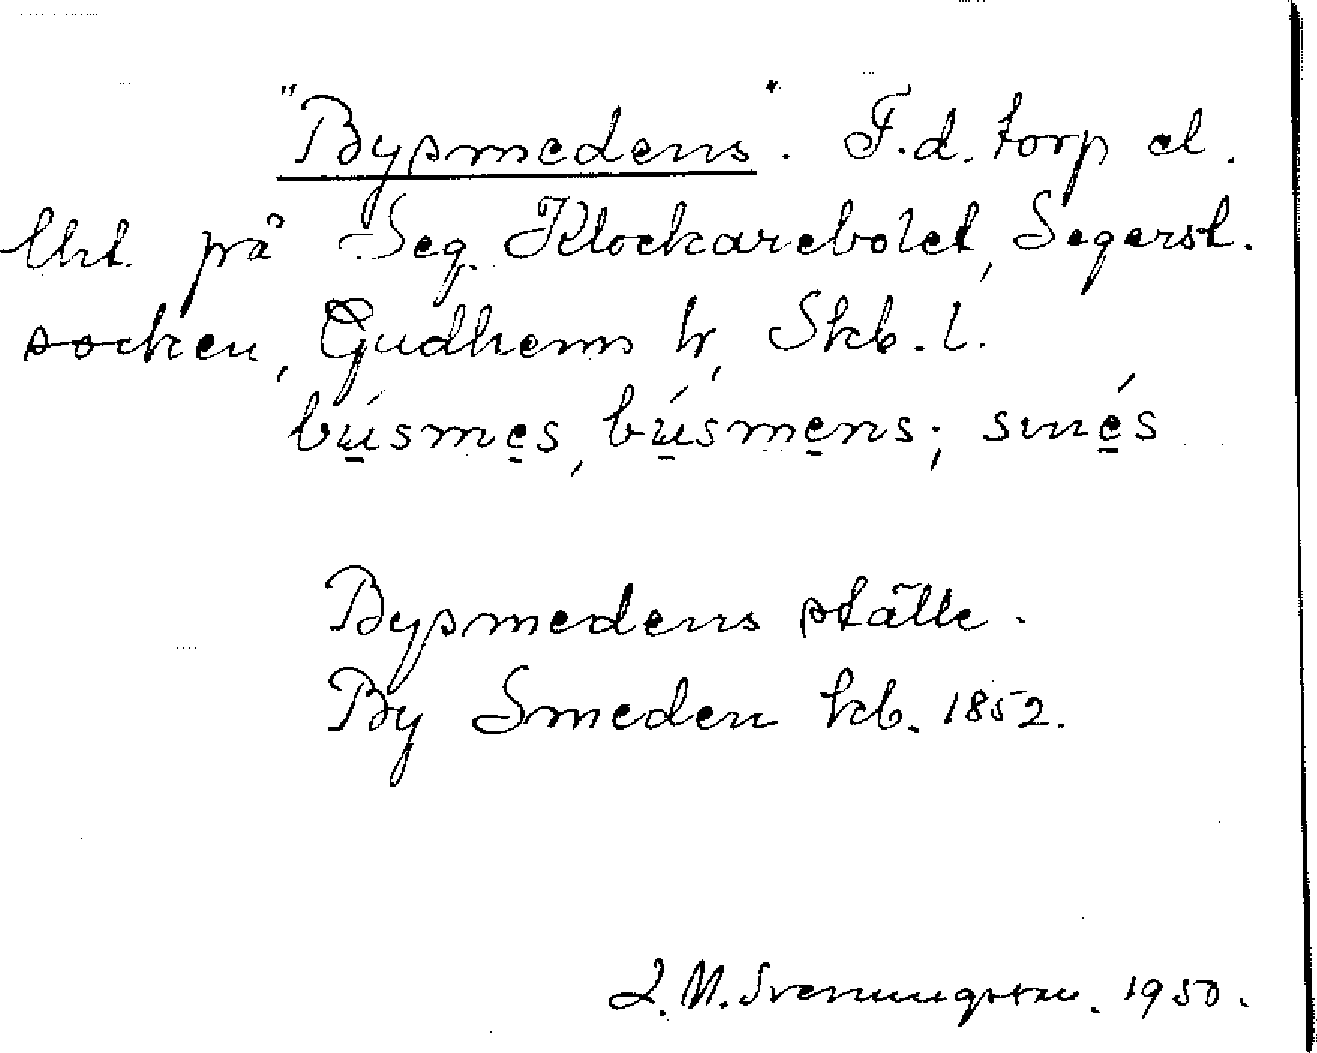 "Bysmedens". F.d. torp el.
lht på Seg. Klockarebolet, Segerst.
socken, Gudhems hr, Skb. l.
bú̲sme̲s, bú̲sme̲ns; smé̲s
Bysmedens ställe.
By Smeden kb. 1852.
J. M. Svenningsson. 1950.